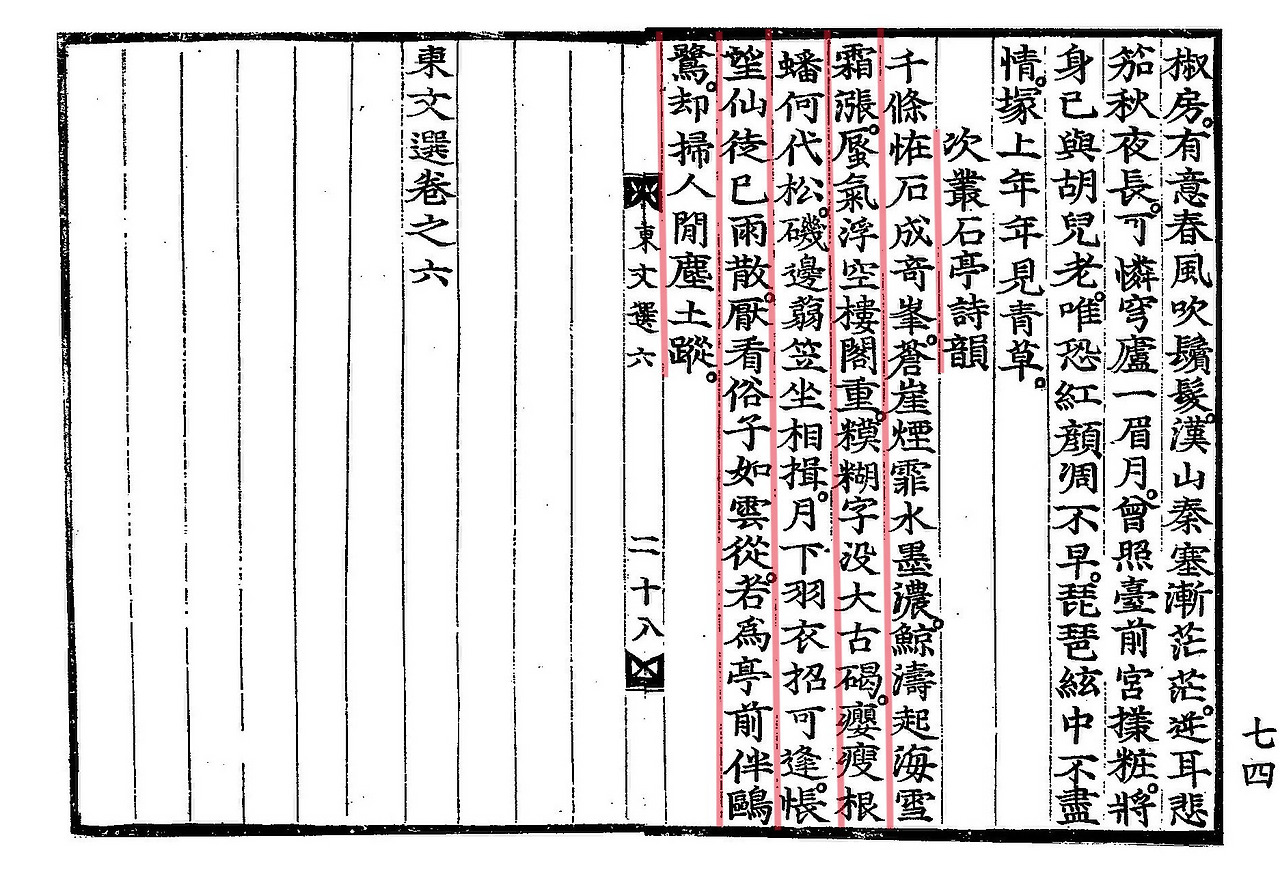 椒房。有意春風吹鬚髮。漢山秦塞漸茫茫。逆耳悲
笳秋夜長。可憐穹廬一眉月。曾照臺前宮㨾粧。將
身已與胡兒老。唯恐紅顔凋不早。琵琶絃中不盡
情。塚上年年見青草。
次叢石亭詩韻
千條恠石成奇峯。蒼崖煙霏水墨濃。鯨濤起海雪
霜漲。蜃氣浮空樓閣重。糢糊字没大古碣。癭瘦根
蟠何代松。磯邊蒻笠坐相揖。月下羽衣招可逢。悵
望仙徒已雨散。厭看俗子如雲從。若爲亭前伴鷗
鷺。却掃人間塵土蹤。
東文選 六
二十八
東文選卷之六
七四